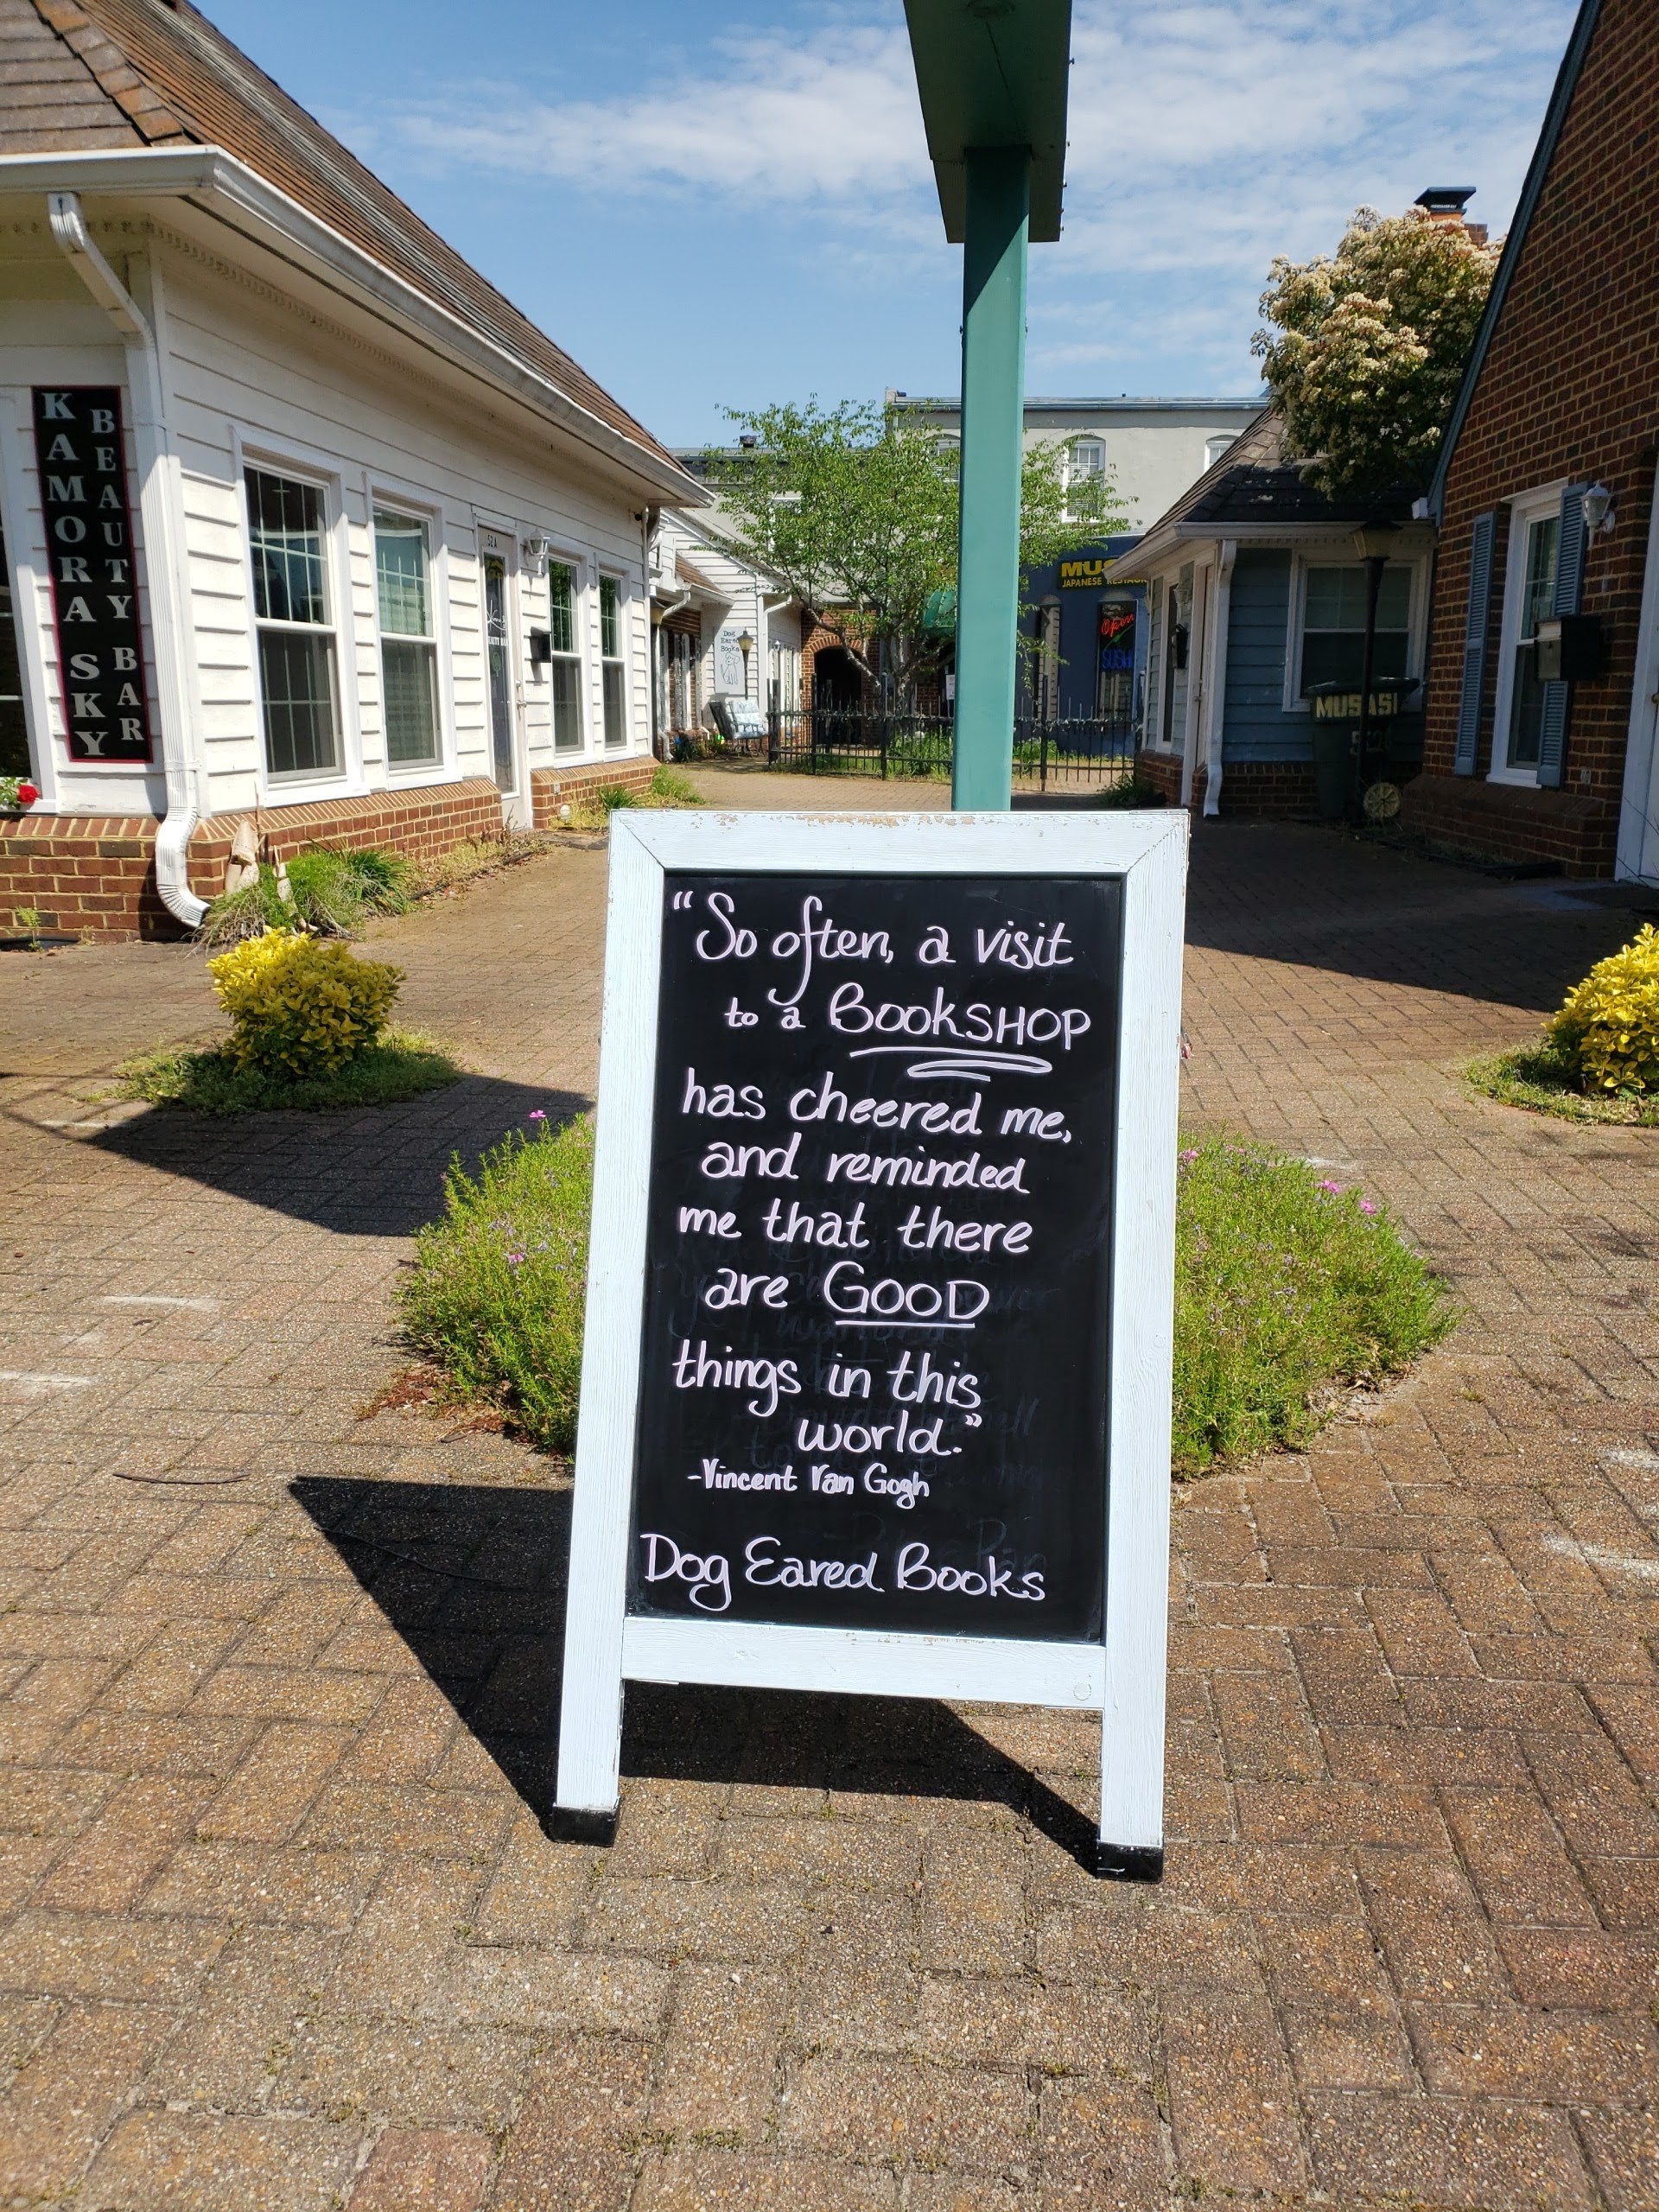 KAMORA SKY
BEAUTY BAR
524
Dog
Eared
Books
JAPANESE
Open
SUSHI
MUSASI
522
“So often, a visit
to a BOOKSHOP
has cheered me,
and reminded
me that there
are GOOD
things in this
world.”
-Vincent Van Gogh
Dog Eared Books